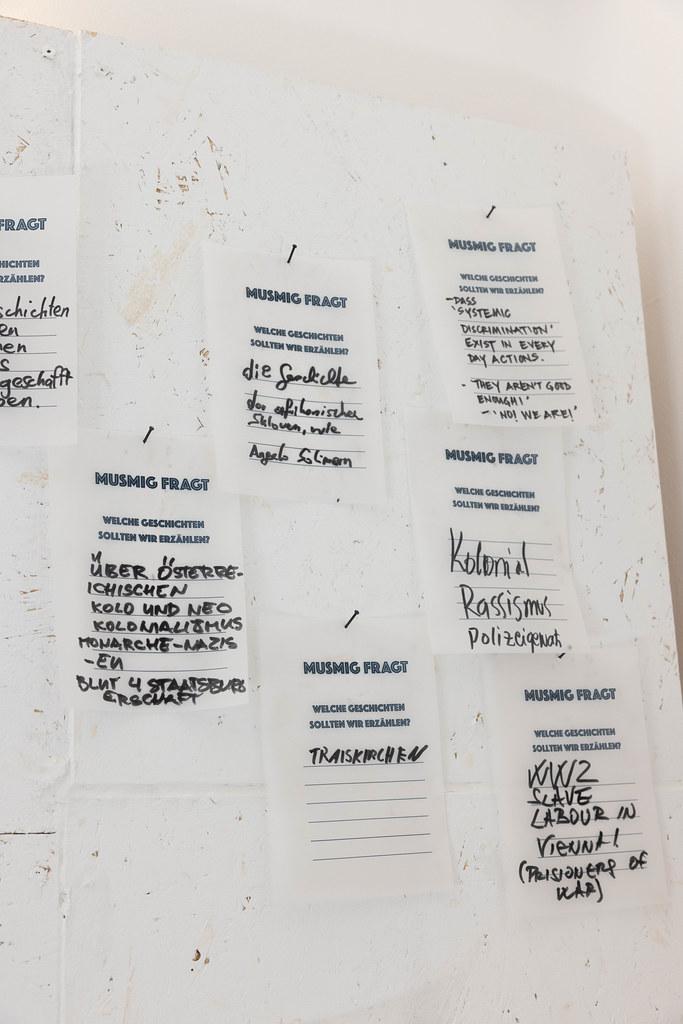 FRAGT
HICHTEN
RZÄHLEN?
schichten
en
en
s
geschafft
ben.
MUSMIG FRAGT
WELCHE GESCHICHTEN
SOLLTEN WIR ERZÄHLEN?
die Geschichte
der afrikanischen
Sklaven, wie
Angelo Soliman
MUSMIG FRAGT
WELCHE GESCHICHTEN
SOLLTEN WIR ERZÄHLEN?
-DASS
'SYSTEMIC
DISCRIMINATION'
EXIST IN EVERY
DAY ACTIONS.
- THEY AREN'T GOOD
ENOUGH!
- 'NO! WE ARE!'
MUSMIG FRAGT
WELCHE GESCHICHTEN
SOLLTEN WIR ERZÄHLEN?
ÜBER ÖSTERRE-
ICHISCHEN
KOLO UND NEO
KOLONIALISMUS
MONARCHE-NAZIS
-EU
BLUT 4 STAATSBUEG
ERSCHAFT
MUSMIG FRAGT
WELCHE GESCHICHTEN
SOLLTEN WIR ERZÄHLEN?
Kolonial
Rassismus
MUSMIG FRAGT
WELCHE GESCHICHTEN
SOLLTEN WIR ERZÄHLEN?
TRAISKIRCHEN
MUSMIG FRAGT
WELCHE GESCHICHTEN
SOLLTEN WIR ERZÄHLEN?
WW2
SLAVE
LABOUR IN
VIENNA!
(PRISIONERS OF
WAR)